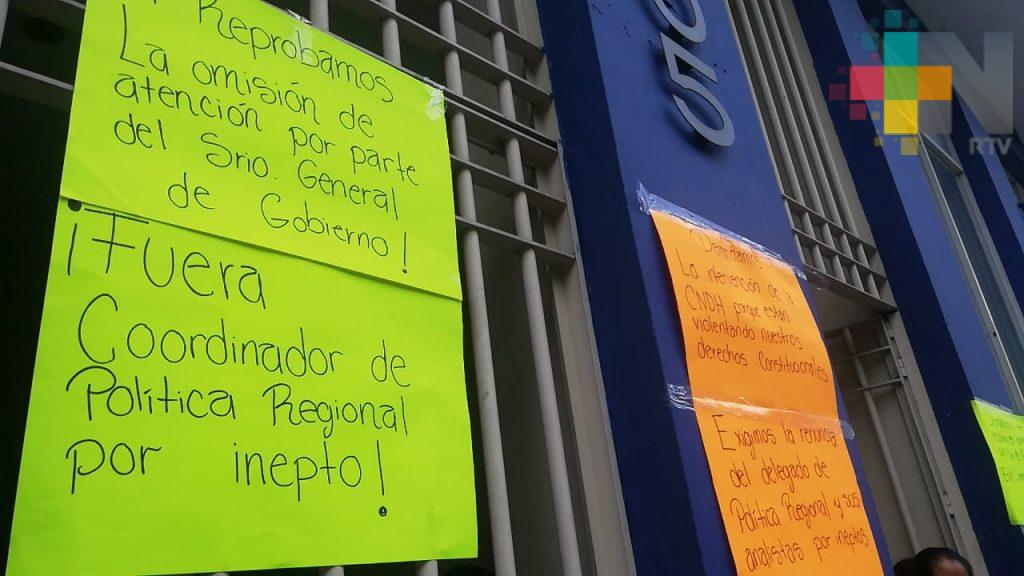 ¡ Reprobamos
La omisión de
atención por parte
del Srio. General
de Gobierno!
¡Fuera
Coordinador de
Política Regional
por inepto!
550
Demandamos
La intervención de la
CNDH porque están
violentando nuestros
derechos Constitucionales
Exigimos la renuncia
del delegado de
Política Regional y sus
analistas por ineptos
N
RTV